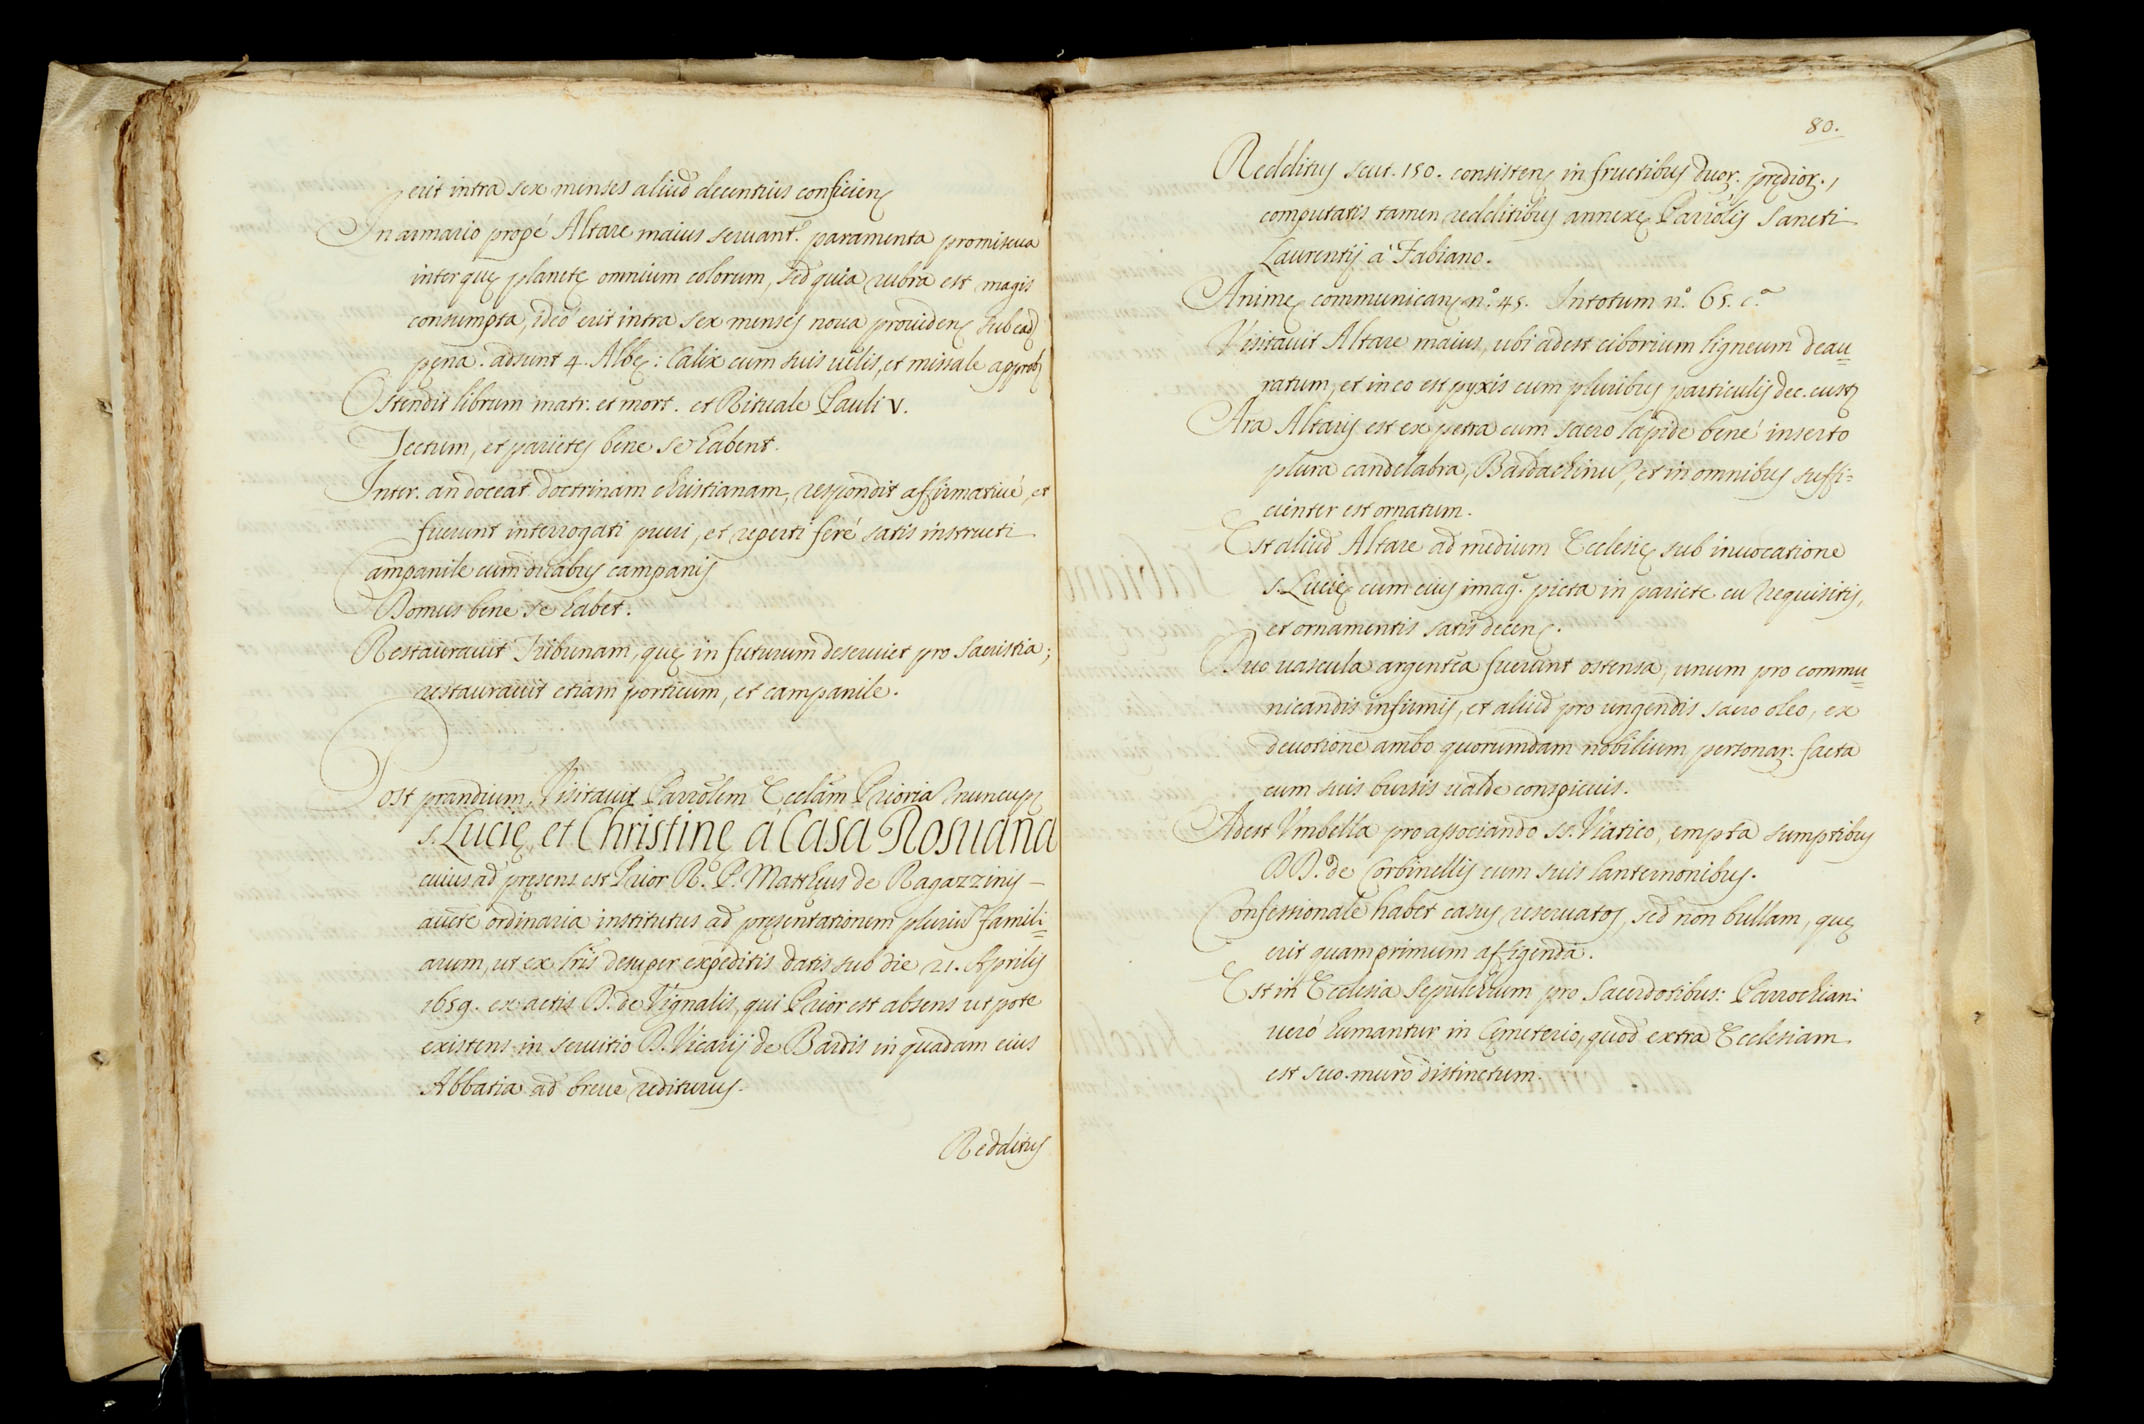 erit intra sex menses aliud decentius conficienȝ
In armario propé Altare maius seruant.r paramenta promiscua
inter quę planetę omnium colorum, sed quia rubra est magis
consumpta, ideò erit intra sex menses noua prouidenȝ sub ead.
pęna. adsunt 4. Albę: Calix cum suis uelis, et missale approb.
Ostendit librum matr. et mort. et Rituale Pauli V.
Tectum, et parietes bene se habent.
Inter. an doceat doctrinam christianam, respondit affirmatiué, et
fuerunt interrogati pueri, et reperti feré satis instructi
Campanile cum duabus campanis
Domus bene se habet.
Restaurauit Tribunam, quę in futurum deseruiet pro Sacristia;
restaurauit etiam porticum, et campanile.
Post prandium, Visitauit Parrōlem Ecclām Prioriā nuncup.
S. Lucię, et Christinę à Casa Rosuana
cuius ad pręsens est Prior R.º P. Mattheus de Ragazzinis –
aucte ordinaria institutus ad pręsentationem pluriū famili=
arum, ut ex Lr̄is desuper expeditis datis sub die 21. Aprilis
1659. ex actis D. de Vignalis, qui Prior est absens ut pote
existens in seruitio D. Vicarij de Bardis in quadam eius
Abbatia ad breue rediturus.
Redditus
80.
Redditus scut. 150. consistenȝ in fructibus duor. prędior.,
computatis tamen redditibus annexę Parrōlis Sancti
Laurentij à Fabiano.
Animę communicanȝ n.º 45. In totum n.º 65. c.ª
Visitauit Altare maius, ubi adest ciborium ligneum deau=
ratum, et in eo est pyxis cum pluribus particulis dec. cust.
Ara Altaris est ex petra cum sacro lapide bené inserto
plura candelabra, Baldachinū, et in omnibus suffi=
cienter est ornatum.
Est aliud Altare ad medium Ecclesię sub inuocatione
S. Lucię cum eius imag.e picta in pariete cū requisitis,
et ornamentis satis decenȝ.
Duo uascula argentea fuerunt ostensa, unum pro commu=
nicandis infirmis, et aliud pro ungendis sacro oleo, ex
deuotione ambo quorumdam nobilium personar. facta
cum suis bursis ualde conspicuis.
Adest Vmbella pro associando SS. Viatico, empta sumptibus
DD. de Corbinellis cum suis lanternonibus.
Confessionale habet casus reseruatos, sed non bullam, quę
erit quamprimum affigenda.
Est in Ecclesia Sepulcrum pro Sacerdotibus: Parrochiani
uerò humantur in Cęmeterio, quod extra Ecclesiam
est suo muro distinctum.